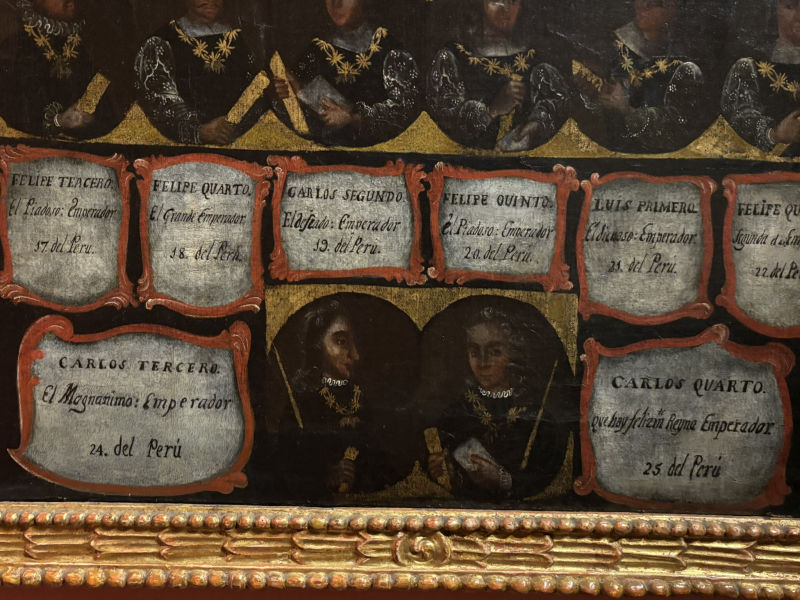 FELIPE TERCERO.
El Piadoso: Emperador
17. del Peru.
FELIPE QUARTO.
El Grande Emperador
18. del Perú.
CARLOS SEGUNDO.
El Deseado: Emperador
19. del Perú.
FELIPE QUINTO.
El Piadoso: Emperador
20. del Perú.
LUIS PRIMERO.
Emperador
21. del Perú.
FELIPE QU
Segunda
22. del Pe
CARLOS TERCERO.
El Magnanimo: Emperador
24. del Perú
CARLOS QUARTO.
que hoy felizm. Reyna Emperador
25. del Perú